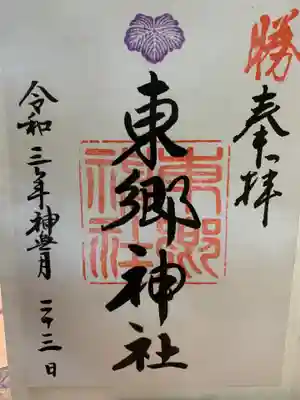 勝
奉拝
東郷神社
東郷
神社
令和三年神無月二十三日